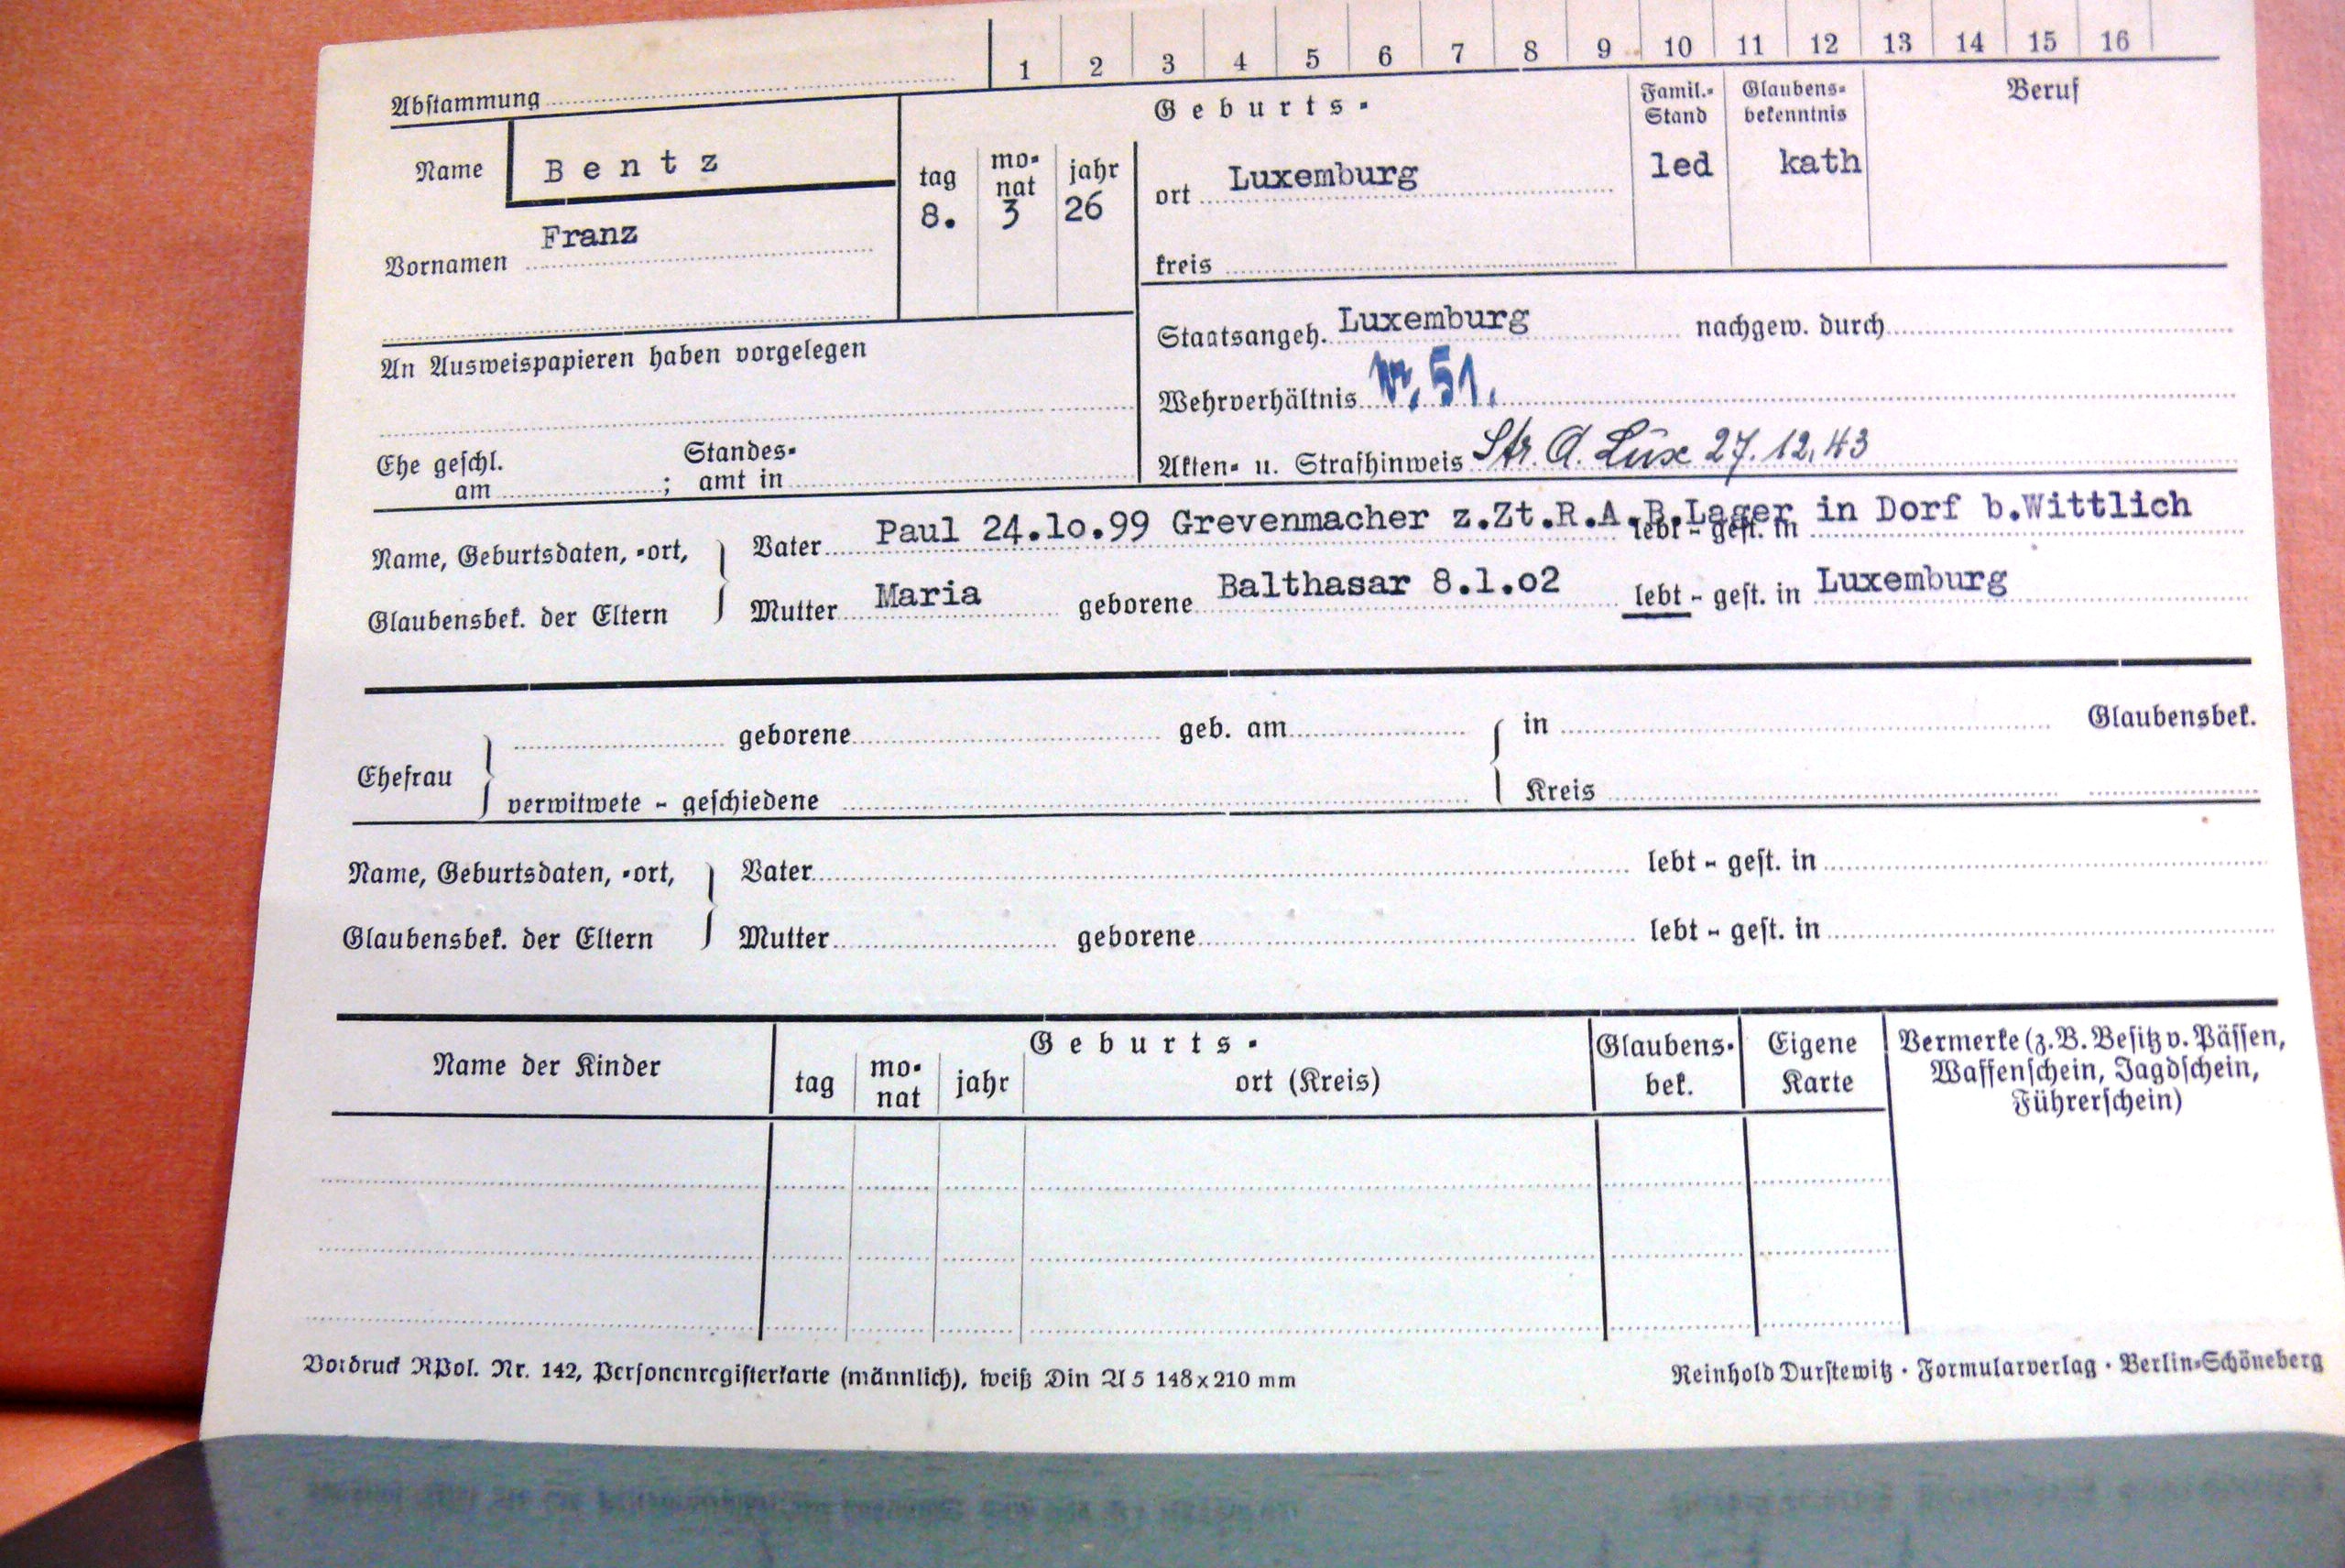 1 2 3 4 5 6 7 8 9 10 11 12 13 14 15 16
Abstammung
Name B e n t z
Vornamen Franz
Geburts-
tag monat jahr
8. 3 26
ort Luxemburg
kreis
Famil.-Stand
led
Glaubensbekenntnis
kath
Beruf
An Ausweispapieren haben vorgelegen
Staatsangeh. Luxemburg nachgew. durch
Wehrverhältnis Nr. 51.
Akten- u. Strafhinweis Str. A. Lux 27.12.43
Ehe geschl. am ; Standesamt in
Name, Geburtsdaten, -ort, Glaubensbek. der Eltern
Vater Paul 24.lo.99 Grevenmacher z.Zt.R.A.B.Lager in Dorf b.Wittlich lebt - gest. in
Mutter Maria geborene Balthasar 8.1.o2 lebt - gest. in Luxemburg
Ehefrau
geborene geb. am in Glaubensbek.
verwitwete - geschiedene Kreis
Name, Geburtsdaten, -ort, Glaubensbek. der Eltern
Vater lebt - gest. in
Mutter geborene lebt - gest. in
Name der Kinder
Geburts-
tag monat jahr ort (Kreis)
Glaubensbek.
Eigene Karte
Vermerke (z.B. Besitz v. Pässen,
Waffenschein, Jagdschein,
Führerschein)
Vordruck RPol. Nr. 142, Personenregisterkarte (männlich), weiß Din A 5 148 x 210 mm
Reinhold Durstewitz · Formularverlag · Berlin-Schöneberg